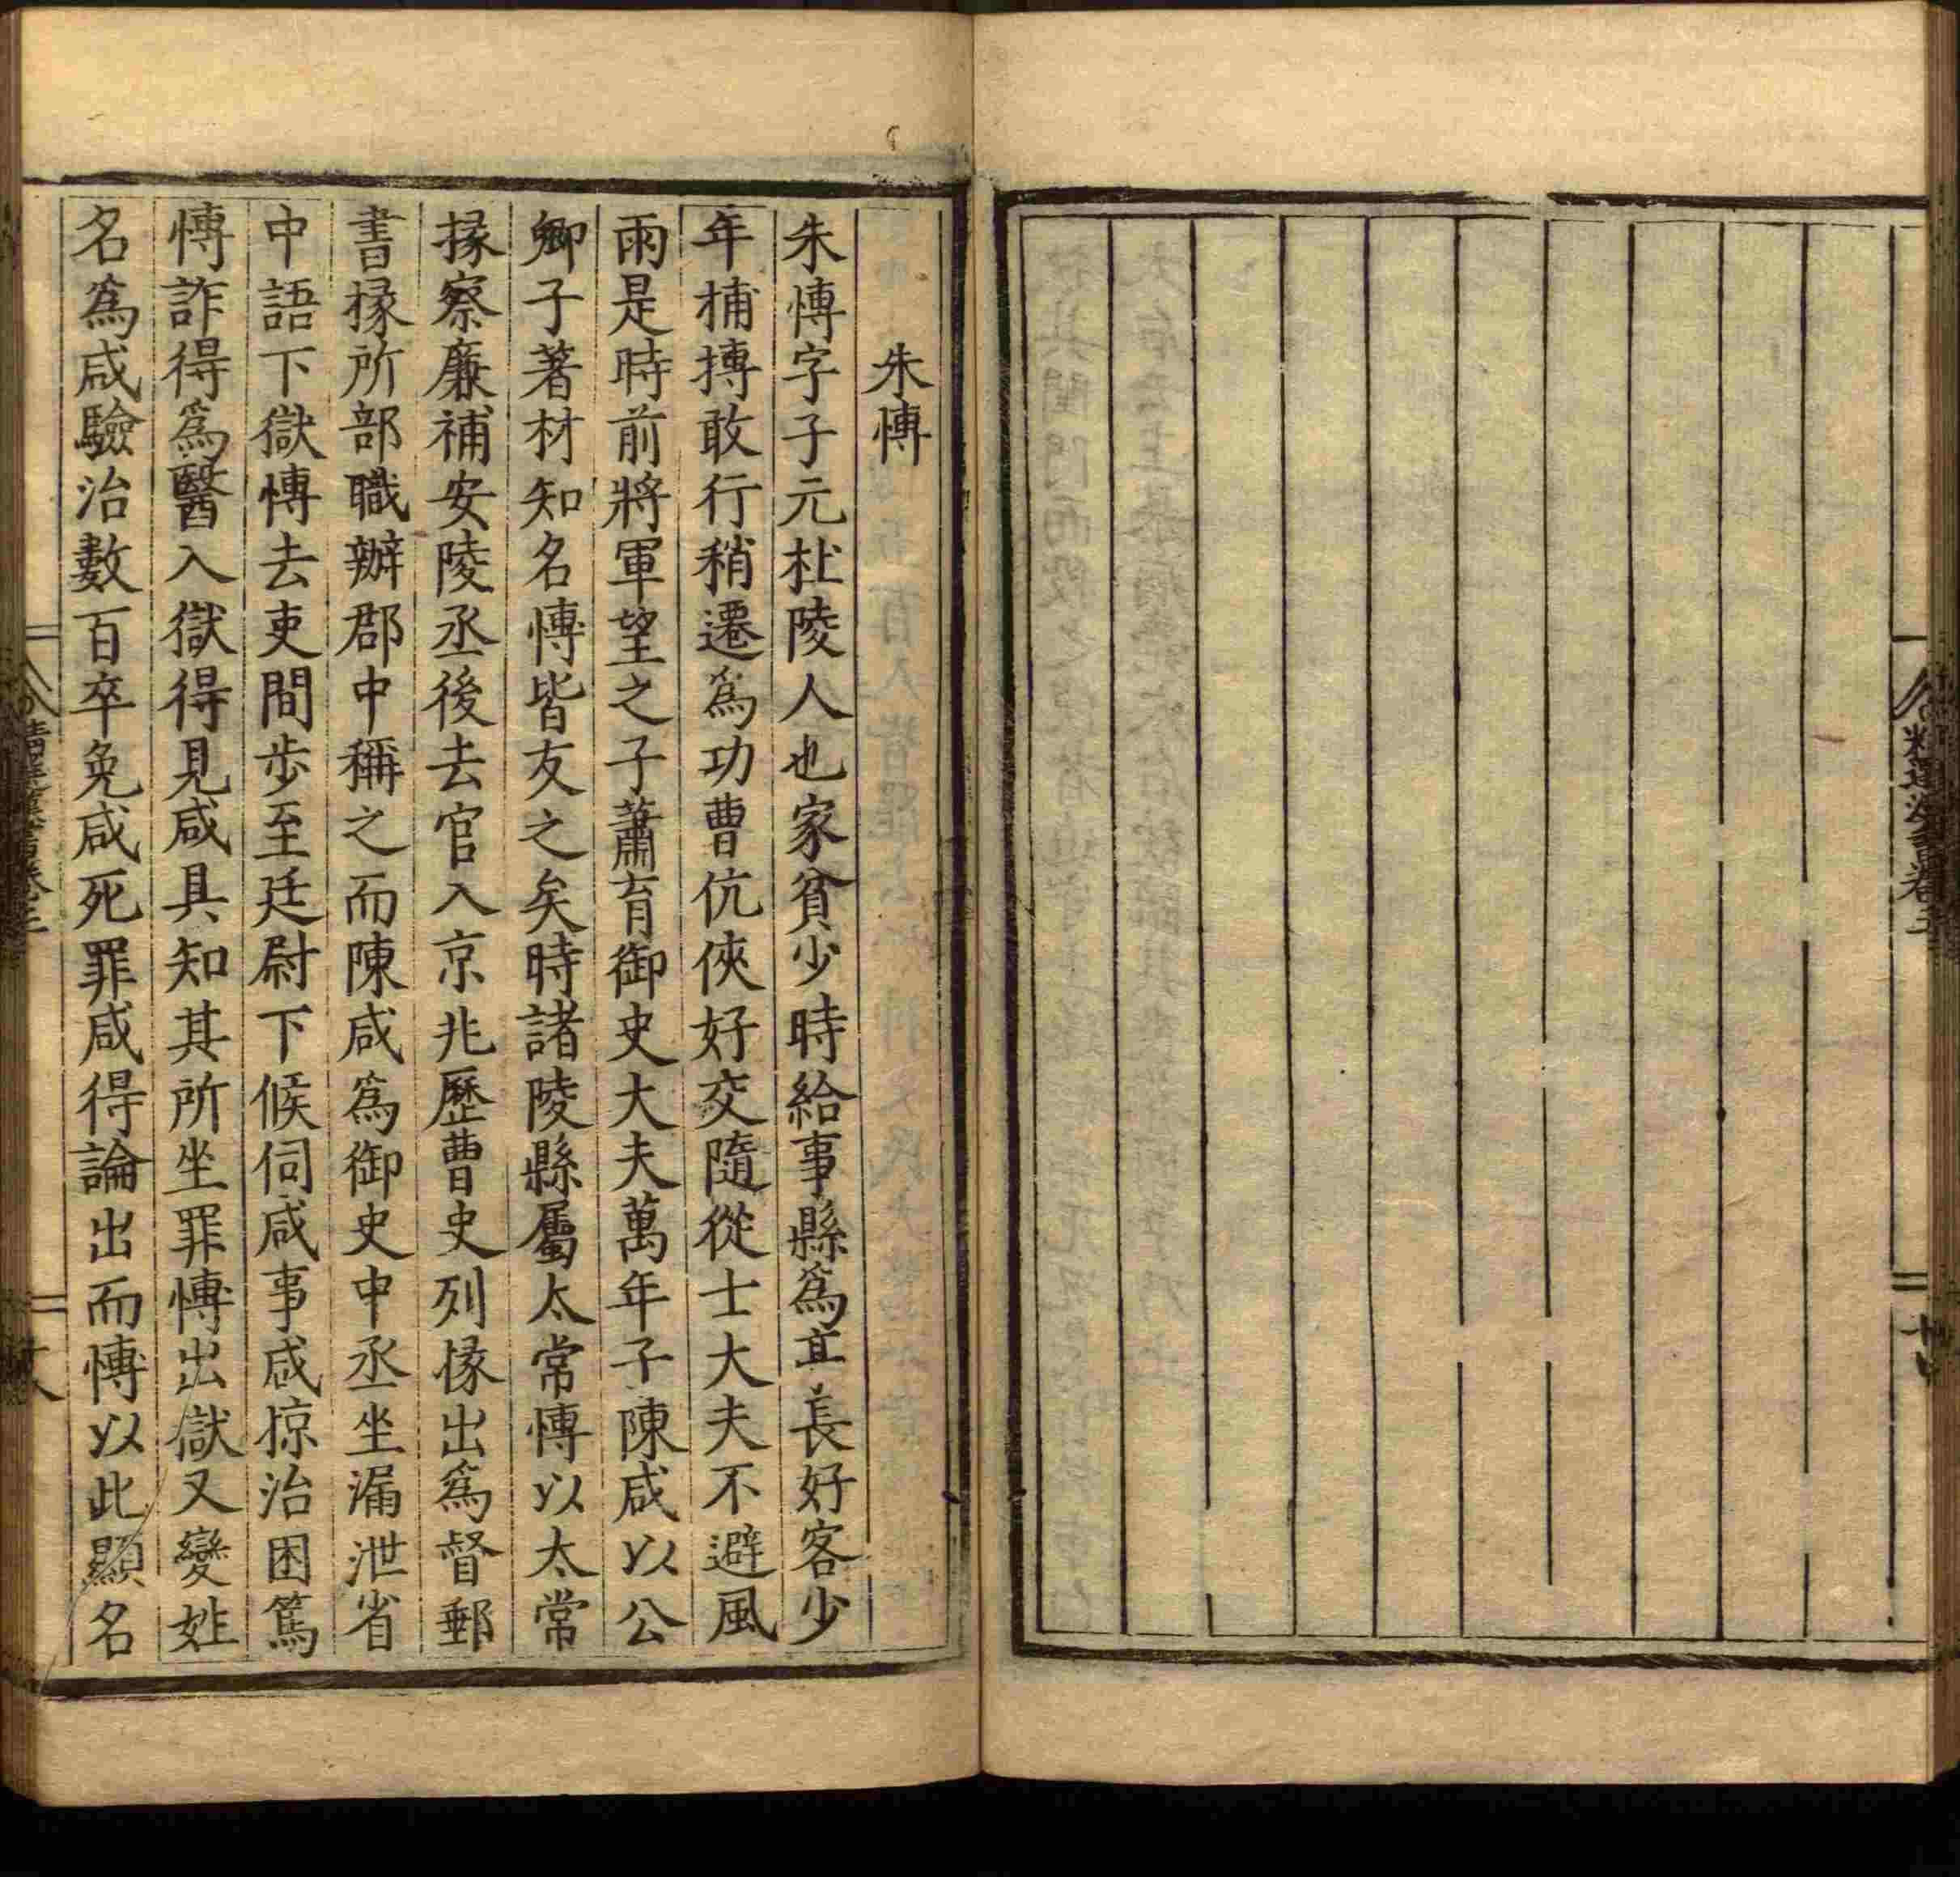 朱愽
朱愽字子元杜陵人也家貧少時給事縣爲亭長好客少
年捕搏敢行稍遷爲功曹伉俠好交隨從士大夫不避風
雨是時前將軍望之子蕭育御史大夫萬年子陳咸以公
卿子著材知名愽皆友之矣時諸陵縣屬太常愽以太常
掾察廉補安陵丞後去官入京兆歷曹史列掾出爲督郵
書掾所部職辦郡中稱之而陳咸爲御史中丞坐漏泄省
中語下獄愽去吏間步至廷尉下候伺咸事咸掠治困篤
愽詐得爲醫入獄得見咸具知其所坐罪愽出獄又變姓
名爲咸驗治數百卒免咸死罪咸得論出而愽以此顯名